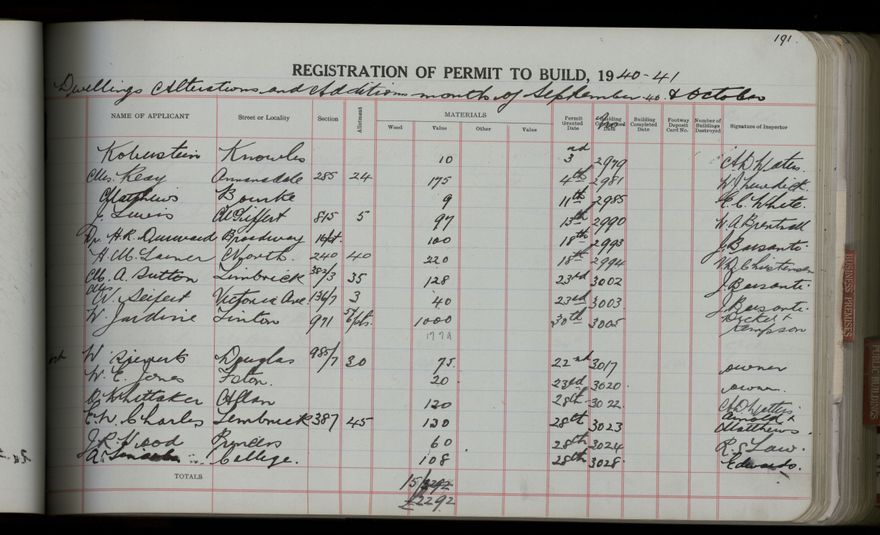 191.
REGISTRATION OF PERMIT TO BUILD, 1940-41
Dwellings Alterations and Additions month of September 40 & October
NAME OF APPLICANT Street or Locality Section Allotment MATERIALS Wood Value Other Value Permit Granted Date No Building Completed Date Footway Deposit Card No. Number of Buildings Destroyed Signature of Inspector
Robinstein Knowles 10 3rd 2979
Mrs. Keay Annandale 285 24 175 4th 2981
Matthews Bourke 9 11th 2985 E. C. White.
J. Lewis 815 5 97 13th 2990 W. A. Brentnall
Dr H. R. Durward Broadway 100 18th 2993 J. Barsanti
H. M. North. 240 40 220 18th 2994
M. A. Sutton Limbrick 387/3 35 128 23rd 3002 J. Barsanti
Mrs W. Seifert Victoria Ave 136/7 3 40 23rd 3003 J. Barsanti
W. Jardine Linton 971 1000 30th 3005 Hector & Kempson
1779
W. Douglas 985/7 30 75. 22nd 3017 owner
W. E. Jones 20. 23rd 3020. owner.
Whittaker Allan 120 28th 3022.
E. W. Charles Limbrick 387 45 120 28th 3023 Arnold & Matthews.
J. R. Wood Princess 60 28th 3024 R. S. Law.
A. Lincoln College. 108 28th 3028. Edwards.
TOTALS 15/2292
£2292
BUSINESS PREMISES
PUBLIC BUILDINGS